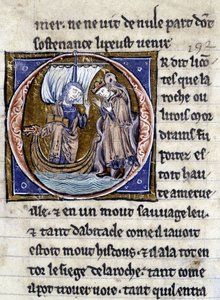 mer. ne ne uit de nule part dōt
sostenance li peust uenir.
192
R dit li cō
tes que la
roche ou
li rois mor
drains fu
portez es
toit hau
te a merue
ille. & en un mout sauuage leu
& tant dabitacle come il i auoit
estoit mout & sil a la tot en
tor le siege de la roche. tant come
il pot trouer uoie. tant quil entra